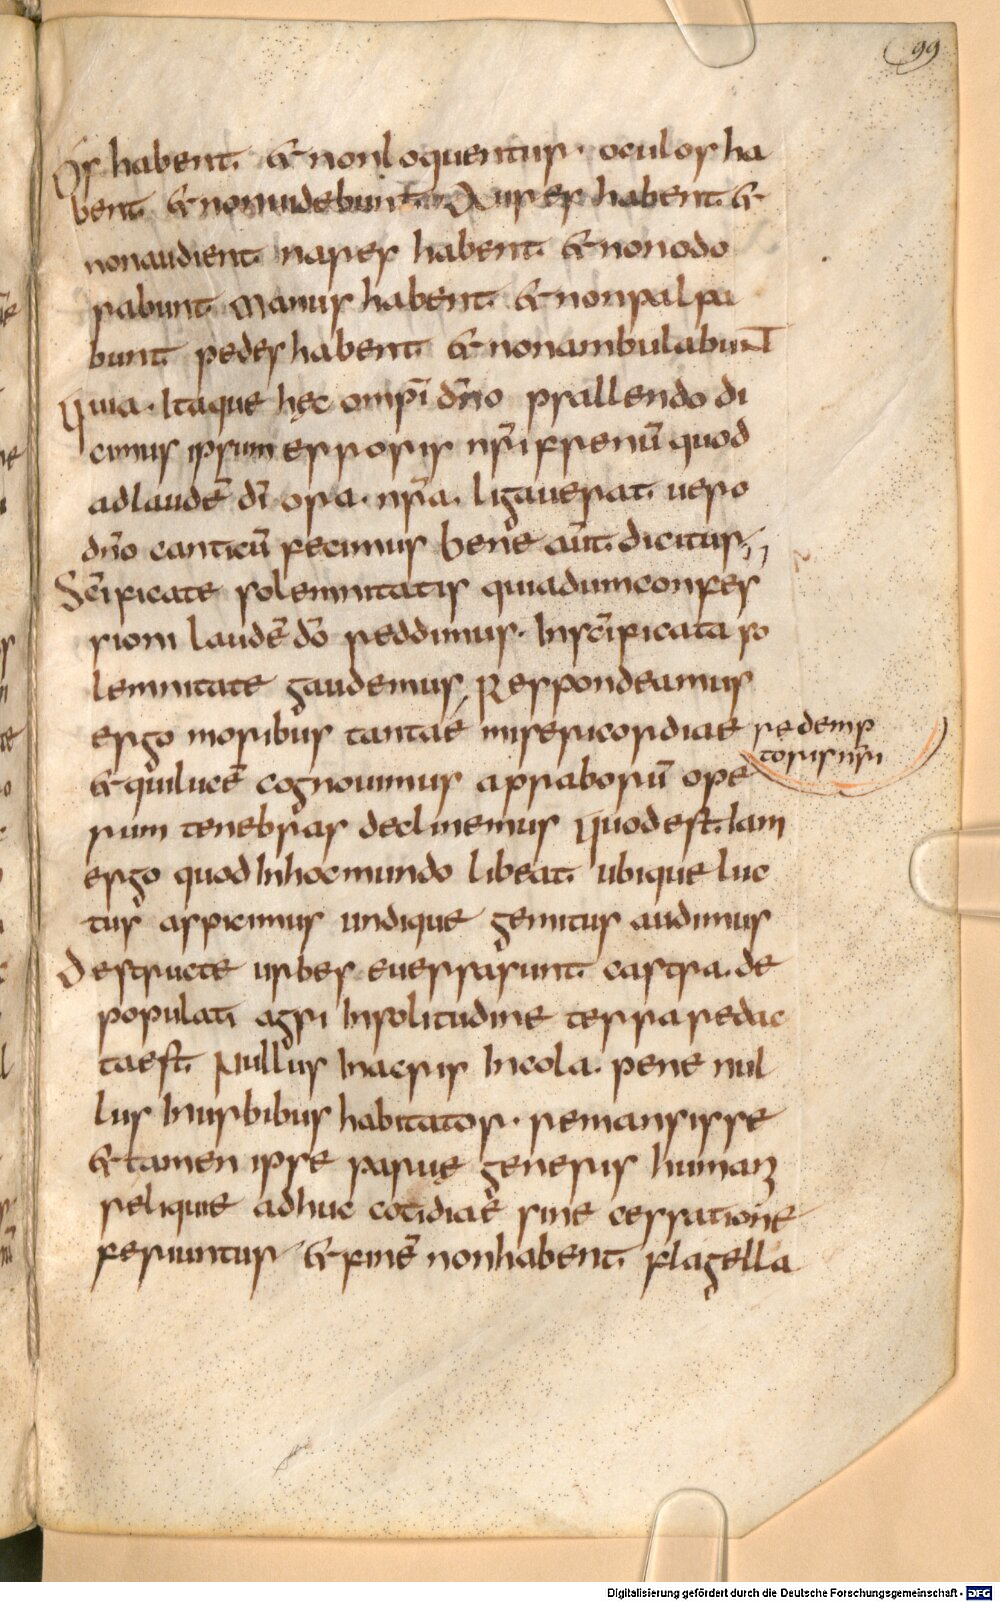 99
Os habent. & non loquentur. oculos ha
bent. & non uidebunt. Aures habent. &
non audient. nares habent. & non odo
rabunt. Manus habent. & non palpa
bunt. pedes habent. & non ambulabunt
Quia. Itaque hęc omp̄i dn̄o psallendo di
cimus ipsum erroris nr̄i frenū quod
ad laudē dī ora. nr̄a. ligauerat. uero
dn̄o canticū fecimus bene aūt. dicitur;
Sc̄ificate solemnitatis quia dum confes
sioni laudē dō reddimus. In sc̄ificata so
lemnitate gaudemus, Respondeamus
ergo moribus tantae misericordiae redemp
toris nr̄i
& qui lucē cognouimus a prauorū ope
rum tenebras declinemus Quod est. Iam
ergo quod In hoc mundo libeat. ubique luc
tus aspicimus undique gemitus audimus
Destructe urbes euersa sunt. castra. de
populati agri In solitudine terra redac
ta est. Nullus In agris Incola. pene nul
lus In urbibus habitator. remansisse
& tamen ipse parue generis human
relique adhuc cotidiae sine cessatione
feriuntur & finē non habent. flagella
Digitalisierung gefördert durch die Deutsche Forschungsgemeinschaft - DFG